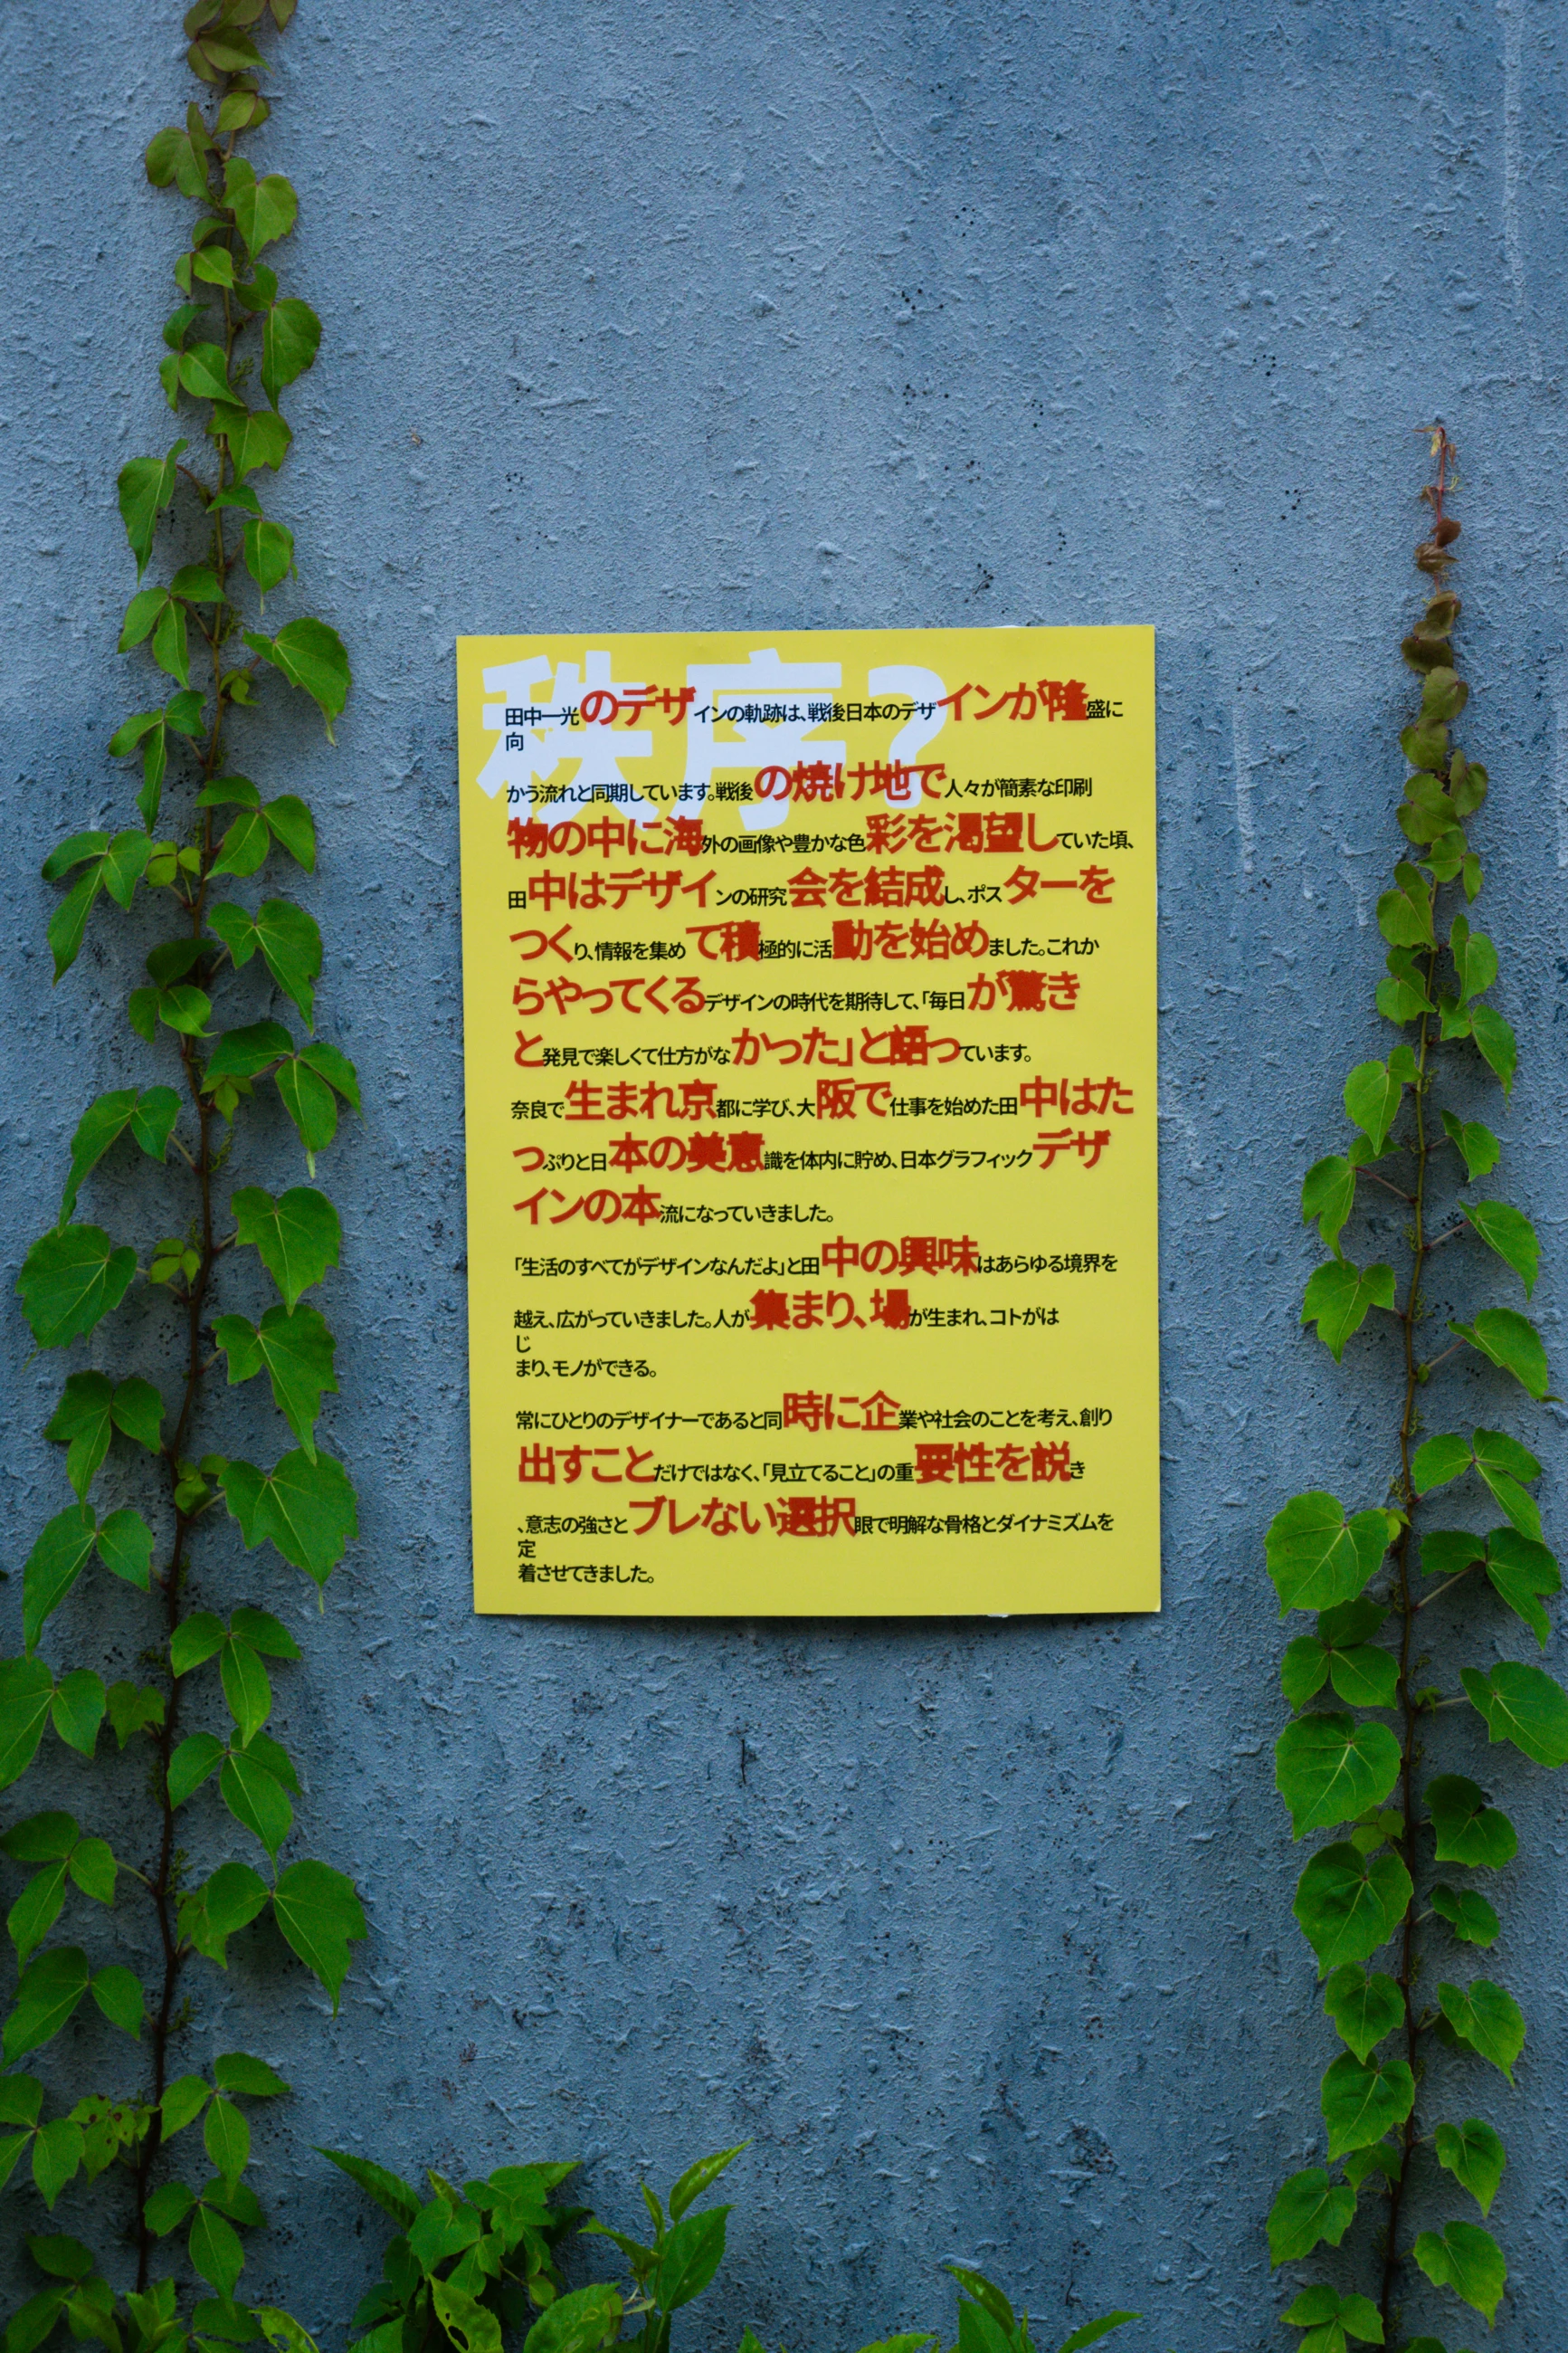 秩序?
田中一光のデザインの軌跡は、戦後日本のデザインが隆盛に
向
かう流れと同期しています。戦後の焼け地で人々が簡素な印刷
物の中に海外の画像や豊かな色彩を渇望していた頃、
田中はデザインの研究会を結成し、ポスターを
つくり、情報を集めて積極的に活動を始めました。これか
らやってくるデザインの時代を期待して、「毎日が驚き
と発見で楽しくて仕方がなかった」と語っています。
奈良で生まれ京都に学び、大阪で仕事を始めた田中はた
っぷりと日本の美意識を体内に貯め、日本グラフィックデザ
インの本流になっていきました。
「生活のすべてがデザインなんだよ」と田中の興味はあらゆる境界を
越え、広がっていきました。人が集まり、場が生まれ、コトがは
じ
まり、モノができる。
常にひとりのデザイナーであると同時に企業や社会のことを考え、創り
出すことだけではなく、「見立てること」の重要性を説き
、意志の強さとブレない選択眼で明解な骨格とダイナミズムを
定
着させてきました。